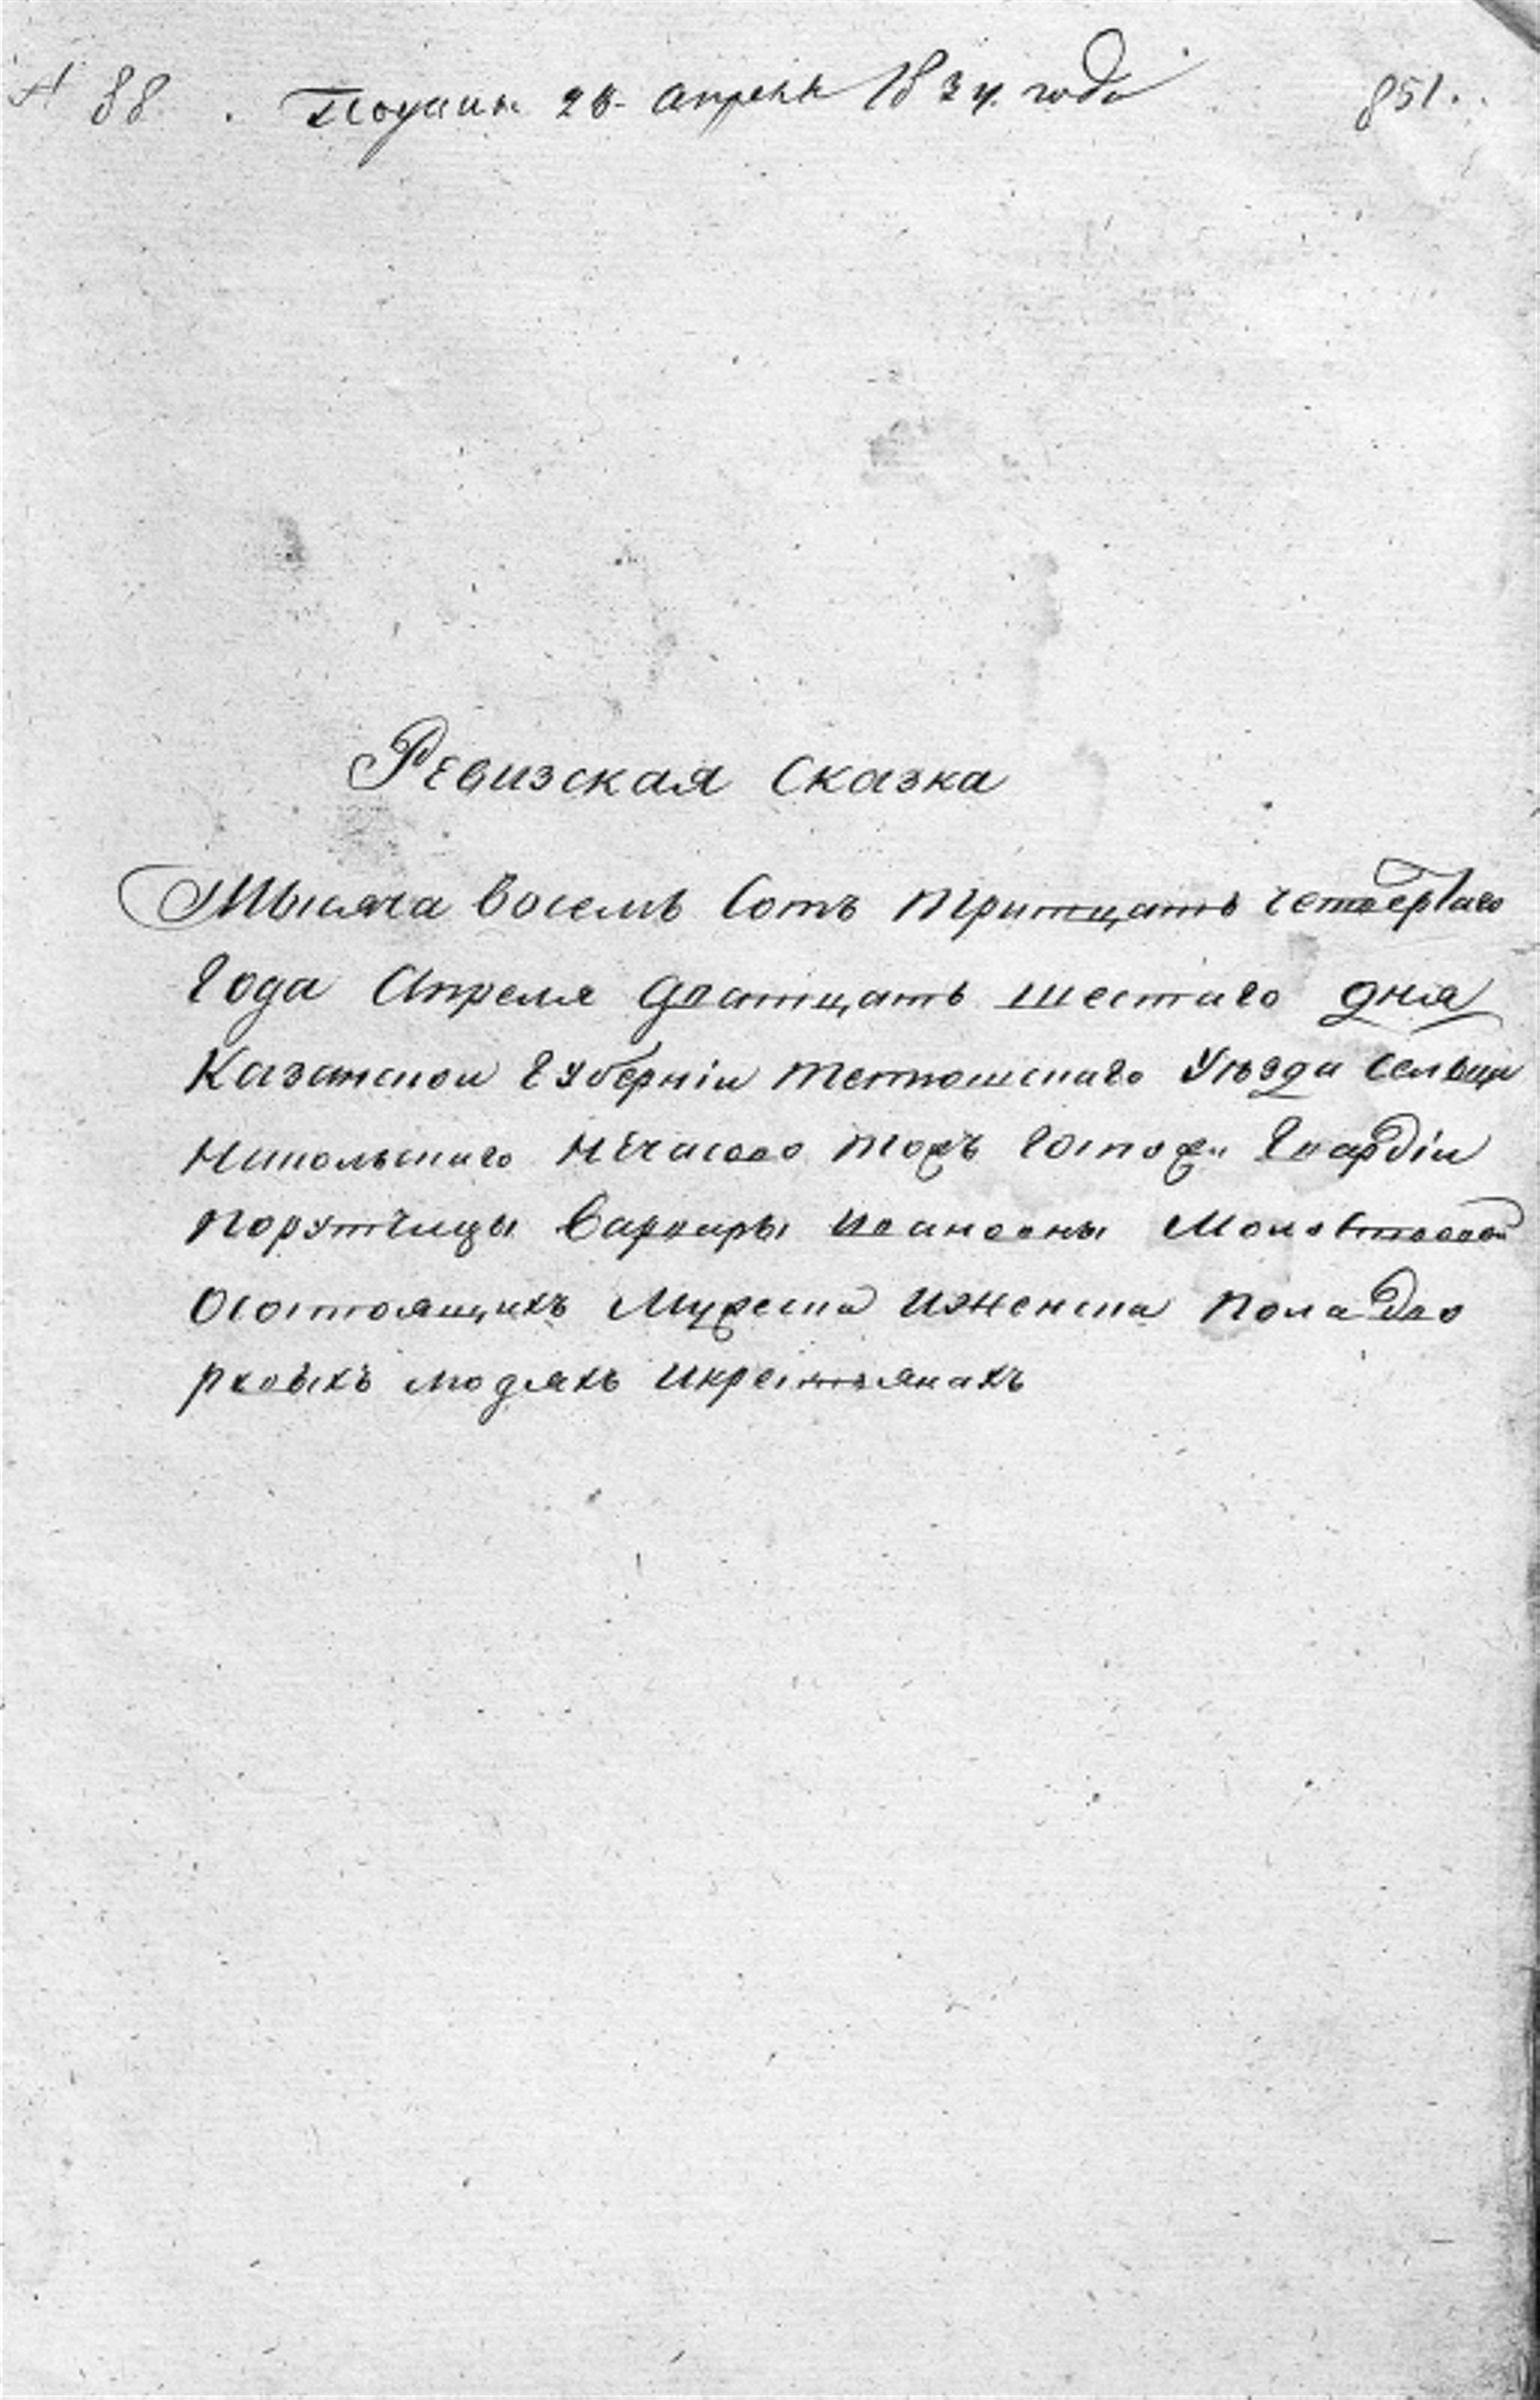 № 88. Подана 26 апреля 1834 года 851.
Ревизская Сказка
Тысяча восемь Сотъ тритцать четвертаго
Года Апреля дватцать шестаго дня
Казанской Губернiи тетюшскаго Уѣзда сельца
Никольскаго Нечасово тожъ Гвардiи
Порутчицы Варвары Ивановны
Осостоящихъ Мужеска иженска пола дво
ровыхъ людяхъ икрестьянахъ